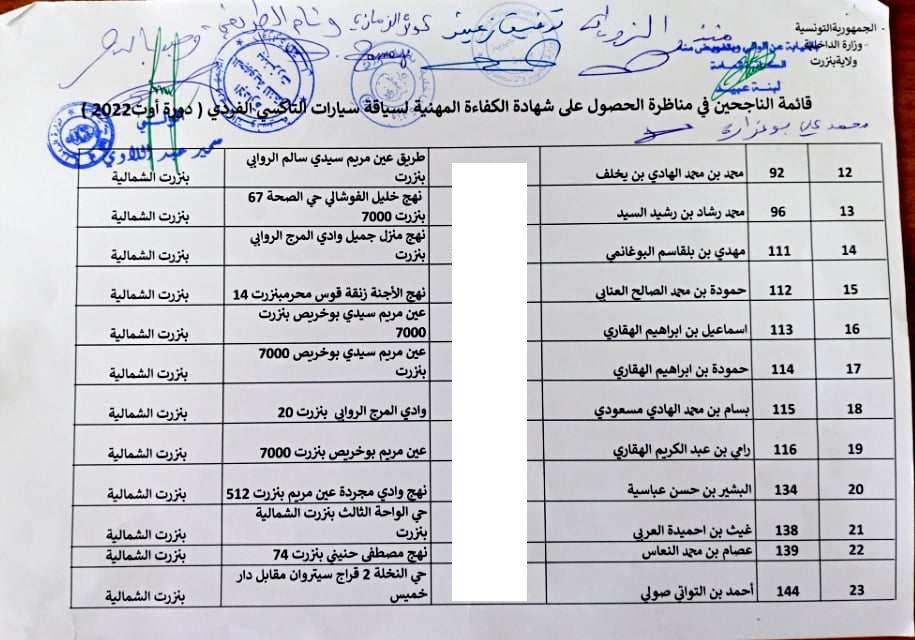 الجمهورية التونسية
وزارة الداخلية
ولاية بنزرت
توفيق زعيتر
قائمة الناجحين في مناظرة الحصول على شهادة الكفاءة المهنية لسياقة سيارات التاكسي الفردي ( دورة أوت 2022 )
سمير عبد اللاوي
12 92 محمد بن محمد الهادي بن يخلف طريق عين مريم سيدي سالم الروابي بنزرت بنزرت الشمالية
13 96 محمد رشاد بن رشيد السيد نهج خليل الفوشالي حي الصحة 67 بنزرت 7000 بنزرت الشمالية
14 111 مهدي بن بلقاسم البوغانمي نهج منزل جميل وادي المرج الروابي بنزرت بنزرت الشمالية
15 112 حمودة بن محمد الصالح العنابي نهج الأجنة زنقة قوس محرمبنزرت 14 بنزرت الشمالية
16 113 اسماعيل بن ابراهيم الهقاري عين مريم سيدي بوخريص بنزرت 7000 بنزرت الشمالية
17 114 حمودة بن ابراهيم الهقاري عين مريم سيدي بوخريص 7000 بنزرت بنزرت الشمالية
18 115 بسام بن محمد الهادي مسعودي وادي المرج الروابي بنزرت 20 بنزرت الشمالية
19 116 رامي بن عبد الكريم الهقاري عين مريم بوخريص بنزرت 7000 بنزرت الشمالية
20 134 البشير بن حسن عباسية نهج وادي مجردة عين مريم بنزرت 512 بنزرت الشمالية
21 138 غيث بن احميدة العربي حي الواحة الثالث بنزرت الشمالية بنزرت بنزرت الشمالية
22 139 عصام بن محمد النعاس نهج مصطفى حنيني بنزرت 74 بنزرت الشمالية
23 144 أحمد بن التواتي صولي حي النخلة 2 قراج سيتروان مقابل دار خميس بنزرت الشمالية